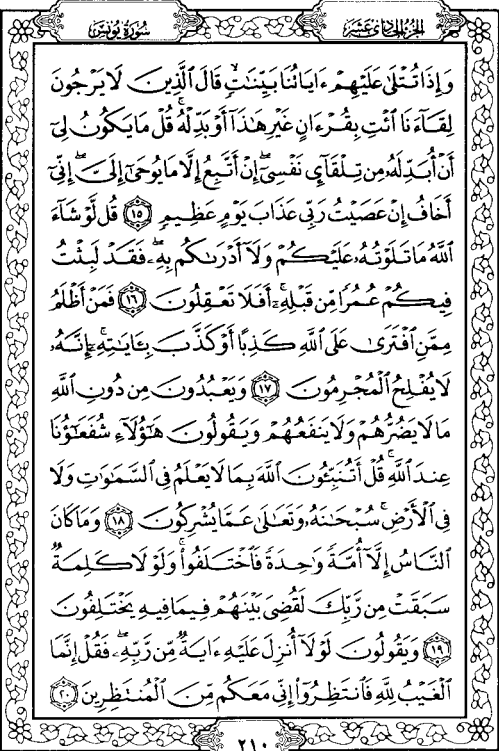 سُورَةُ يُونُسَ
الجُزْءُ الحَادِيَ عَشَرَ
وَإِذَا تُتْلَىٰ عَلَيْهِمْ ءَايَاتُنَا بَيِّنَٰتٍۙ قَالَ ٱلَّذِينَ لَا يَرْجُونَ
لِقَآءَنَا ٱئْتِ بِقُرْءَانٍ غَيْرِ هَٰذَآ أَوْ بَدِّلْهُۚ قُلْ مَا يَكُونُ لِىٓ
أَنْ أُبَدِّلَهُۥ مِن تِلْقَآئِ نَفْسِىٓۖ إِنْ أَتَّبِعُ إِلَّا مَا يُوحَىٰٓ إِلَىَّۖ إِنِّىٓ
أَخَافُ إِنْ عَصَيْتُ رَبِّى عَذَابَ يَوْمٍ عَظِيمٍ ١٥ قُل لَّوْ شَآءَ
ٱللَّهُ مَا تَلَوْتُهُۥ عَلَيْكُمْ وَلَآ أَدْرَىٰكُم بِهِۦۖ فَقَدْ لَبِثْتُ
فِيكُمْ عُمُرًا مِّن قَبْلِهِۦٓۚ أَفَلَا تَعْقِلُونَ ١٦ فَمَنْ أَظْلَمُ
مِمَّنِ ٱفْتَرَىٰ عَلَى ٱللَّهِ كَذِبًا أَوْ كَذَّبَ بِـَٔايَٰتِهِۦٓۚ إِنَّهُۥ
لَا يُفْلِحُ ٱلْمُجْرِمُونَ ١٧ وَيَعْبُدُونَ مِن دُونِ ٱللَّهِ
مَا لَا يَضُرُّهُمْ وَلَا يَنفَعُهُمْ وَيَقُولُونَ هَٰٓؤُلَآءِ شُفَعَٰٓؤُنَا
عِندَ ٱللَّهِۚ قُلْ أَتُنَبِّـُٔونَ ٱللَّهَ بِمَا لَا يَعْلَمُ فِى ٱلسَّمَٰوَٰتِ وَلَا
فِى ٱلْأَرْضِۚ سُبْحَٰنَهُۥ وَتَعَٰلَىٰ عَمَّا يُشْرِكُونَ ١٨ وَمَا كَانَ
ٱلنَّاسُ إِلَّآ أُمَّةً وَٰحِدَةً فَٱخْتَلَفُوا۟ۚ وَلَوْلَا كَلِمَةٌ
سَبَقَتْ مِن رَّبِّكَ لَقُضِىَ بَيْنَهُمْ فِيمَا فِيهِ يَخْتَلِفُونَ
١٩ وَيَقُولُونَ لَوْلَآ أُنزِلَ عَلَيْهِ ءَايَةٌ مِّن رَّبِّهِۦۖ فَقُلْ إِنَّمَا
ٱلْغَيْبُ لِلَّهِ فَٱنتَظِرُوٓا۟ إِنِّى مَعَكُم مِّنَ ٱلْمُنتَظِرِينَ ٢٠
٢١٠